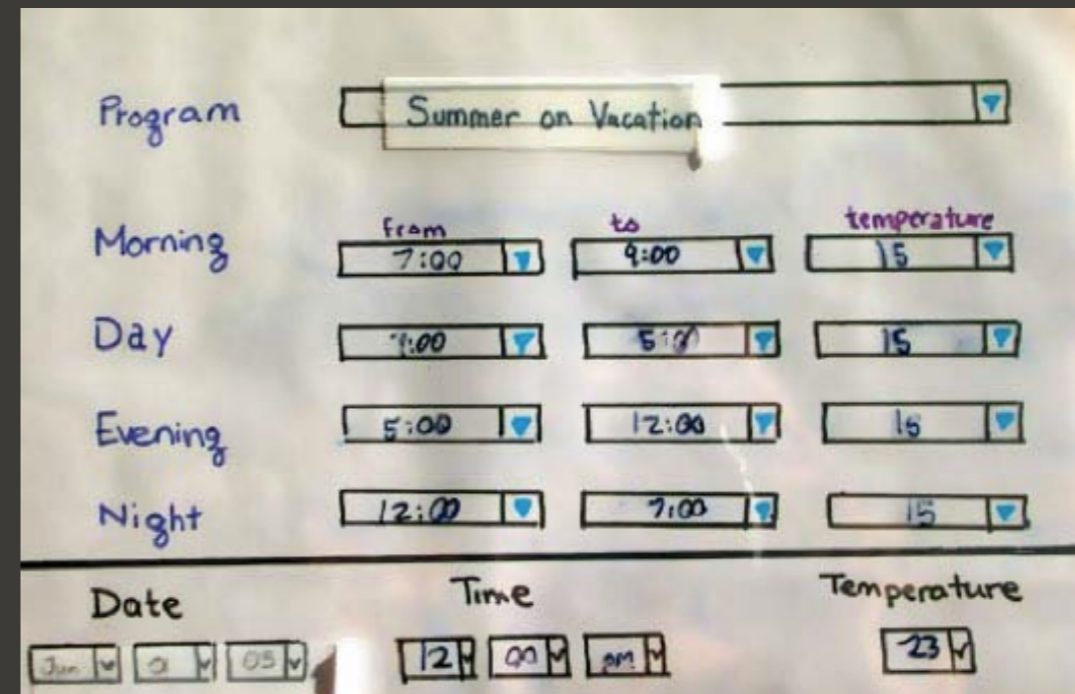 Program Summer on Vacation
from to temperature
Morning 7:00 9:00 15
Day 5:00 15
Evening 5:00 12:00 15
Night 12:00 7:00 15
Date Time Temperature
Jun 05 12 00 pm 23